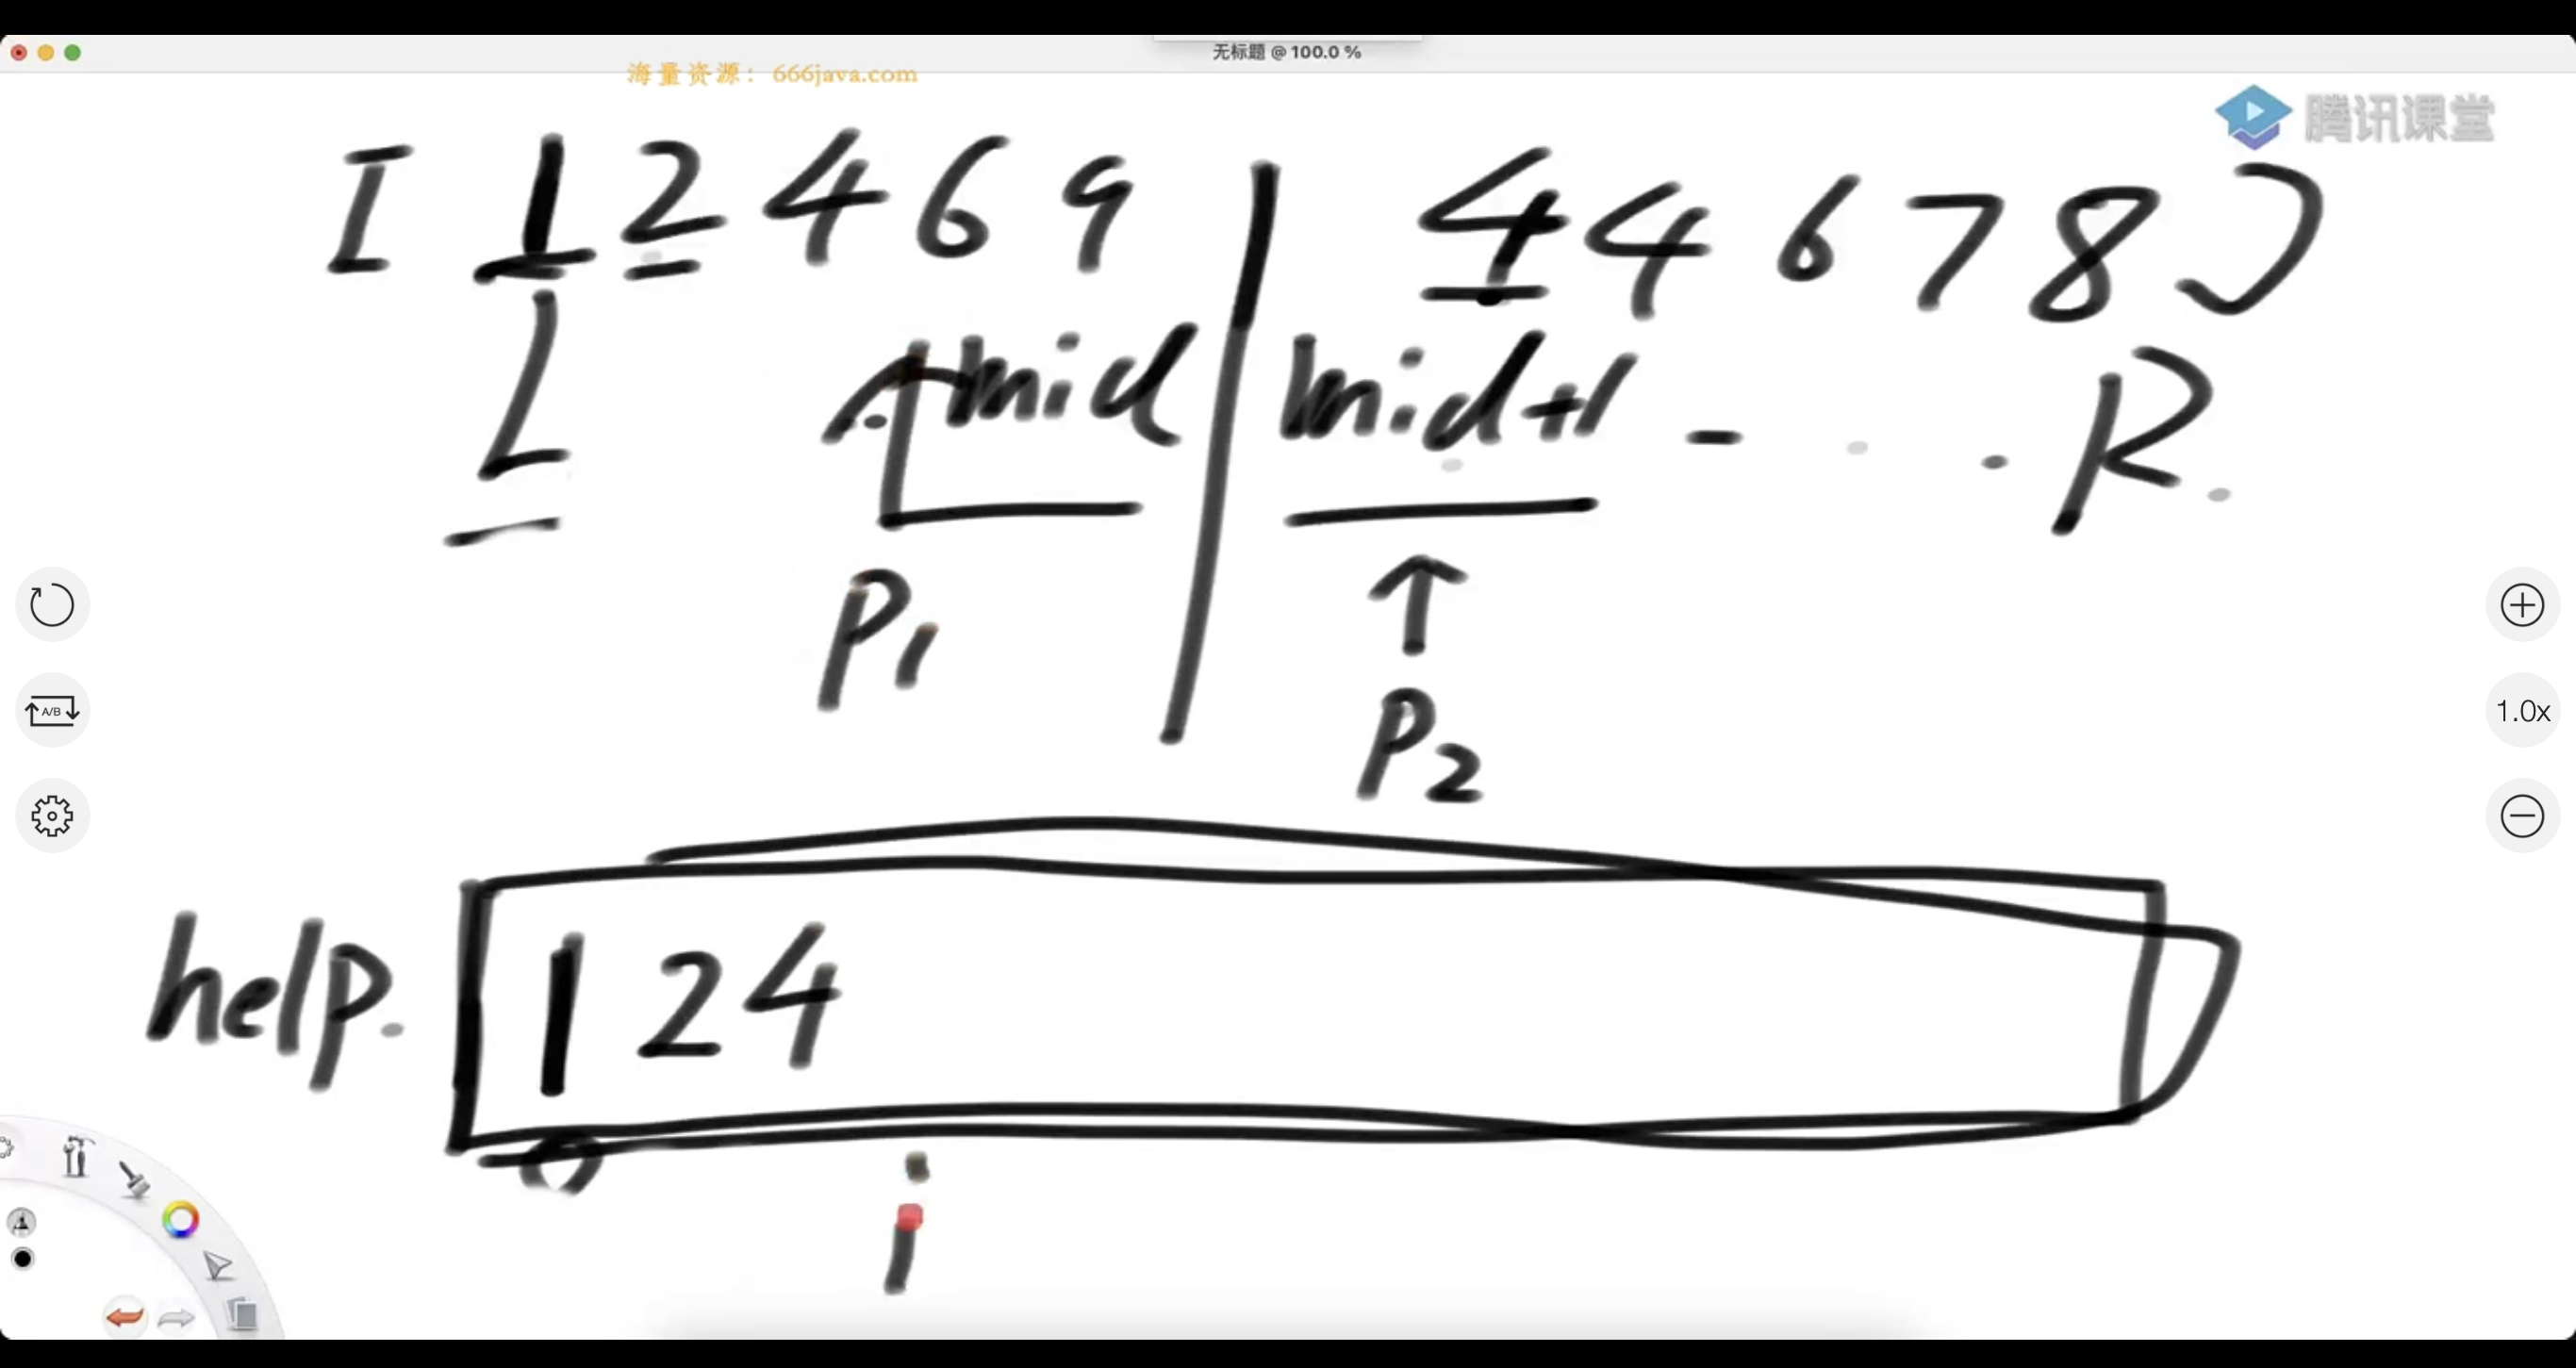 无标题 @ 100.0 %
海量资源：666java.com
腾讯课堂
[ 1 2 4 6 9 | 4 4 6 7 8 ]
L mid mid+1 - . . R.
P1 P2
1.0x
A/B
help. 1 2 4
0 i